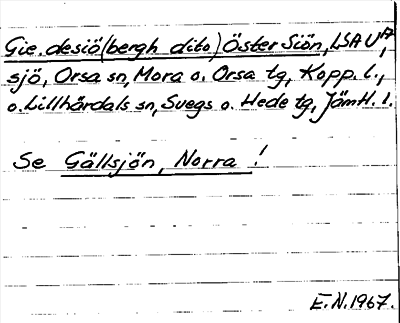 Gie.desiö(bergh dito) Öster Siön, LSA U17,
sjö, Orsa sn, Mora o. Orsa tg, Kopp. l.,
o. Lillhärdals sn, Svegs o. Hede tg, Jämtl. l.
Se Gällsjön, Norra !
E.N.1967.